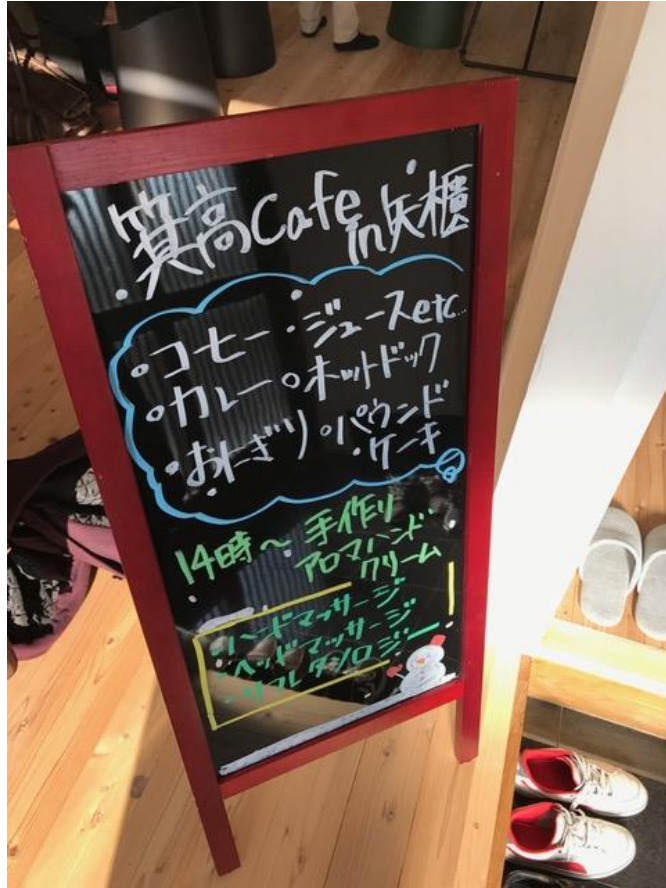 箕高Cafe
in矢櫃
・コーヒー・ジュースetc...
・カレー・ホットドック
・おにぎり・パウンド
・ケーキ
14時～手作り
アロマハンド
クリーム
・ハンドマッサージ
・ヘッドマッサージ
・リフレクソロジー